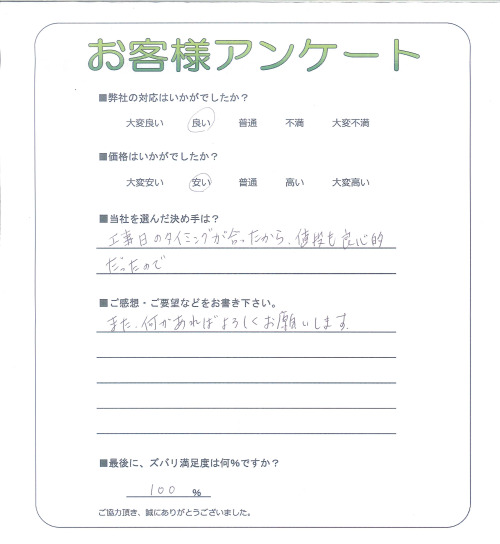 お客様アンケート
■弊社の対応はいかがでしたか？
大変良い 良い 普通 不満 大変不満
■価格はいかがでしたか？
大変安い 安い 普通 高い 大変高い
■当社を選んだ決め手は？
工事日のタイミングが合ったから、値段も良心的
だったので
■ご感想・ご要望などをお書き下さい。
また、何かあればよろしくお願いします。
■最後に、ズバリ満足度は何%ですか？
100 %
ご協力頂き、誠にありがとうございました。